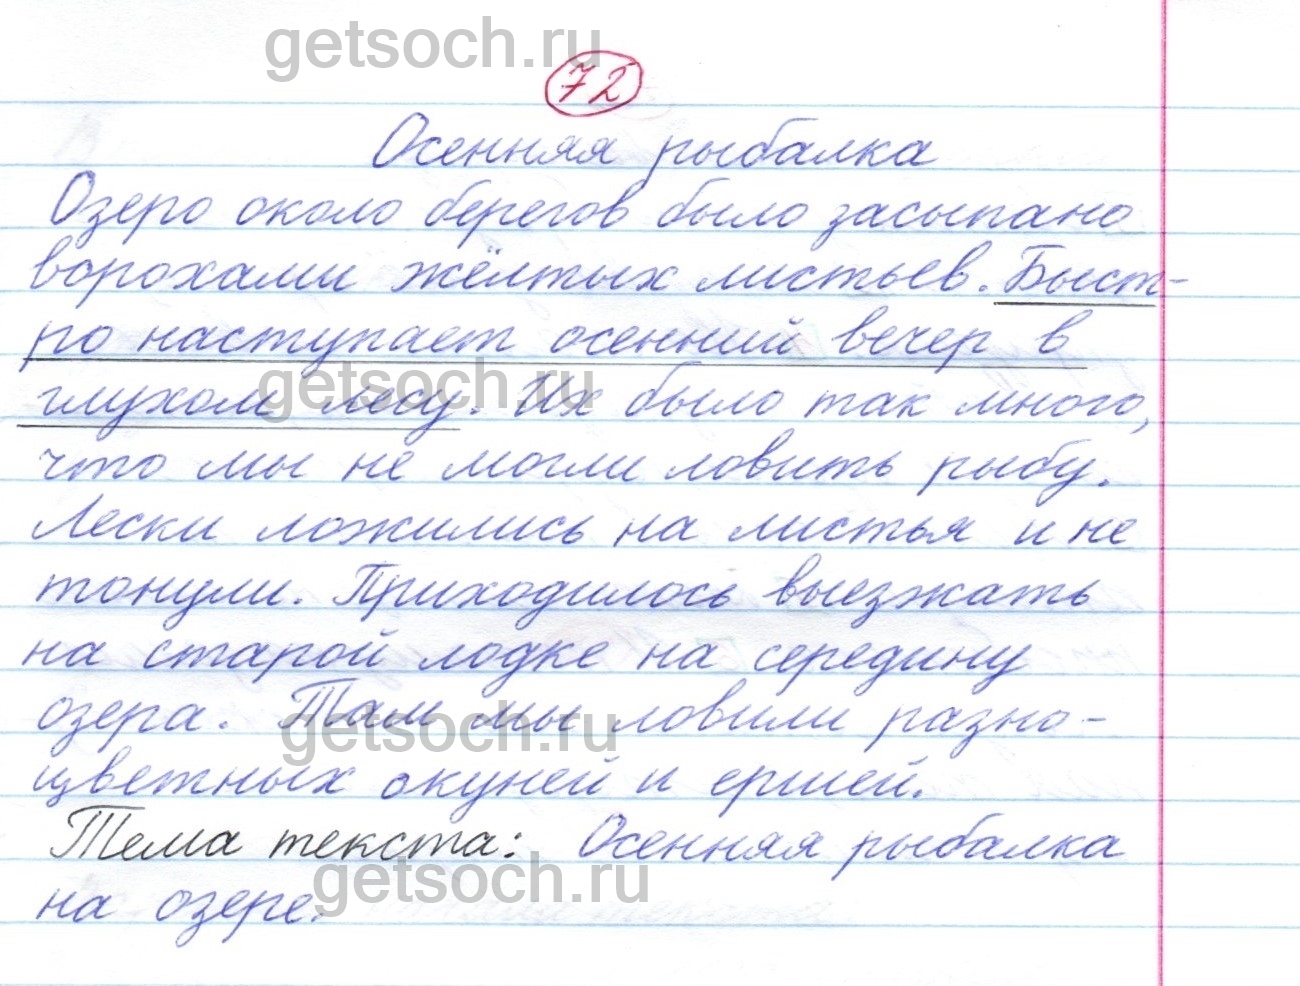 getsoch.ru
72
Осенняя рыбалка
Озеро около берегов было засыпано
ворохами жёлтых листьев. Быст-
ро наступает осенний вечер в
глухом лесу. Их было так много,
getsoch.ru
что мы не могли ловить рыбу.
Лески ложились на листья и не
тонули. Приходилось выезжать
на старой лодке на середину
озера. Там мы ловили разно-
getsoch.ru
цветных окуней и ершей.
Тема текста: Осенняя рыбалка
getsoch.ru
на озере.